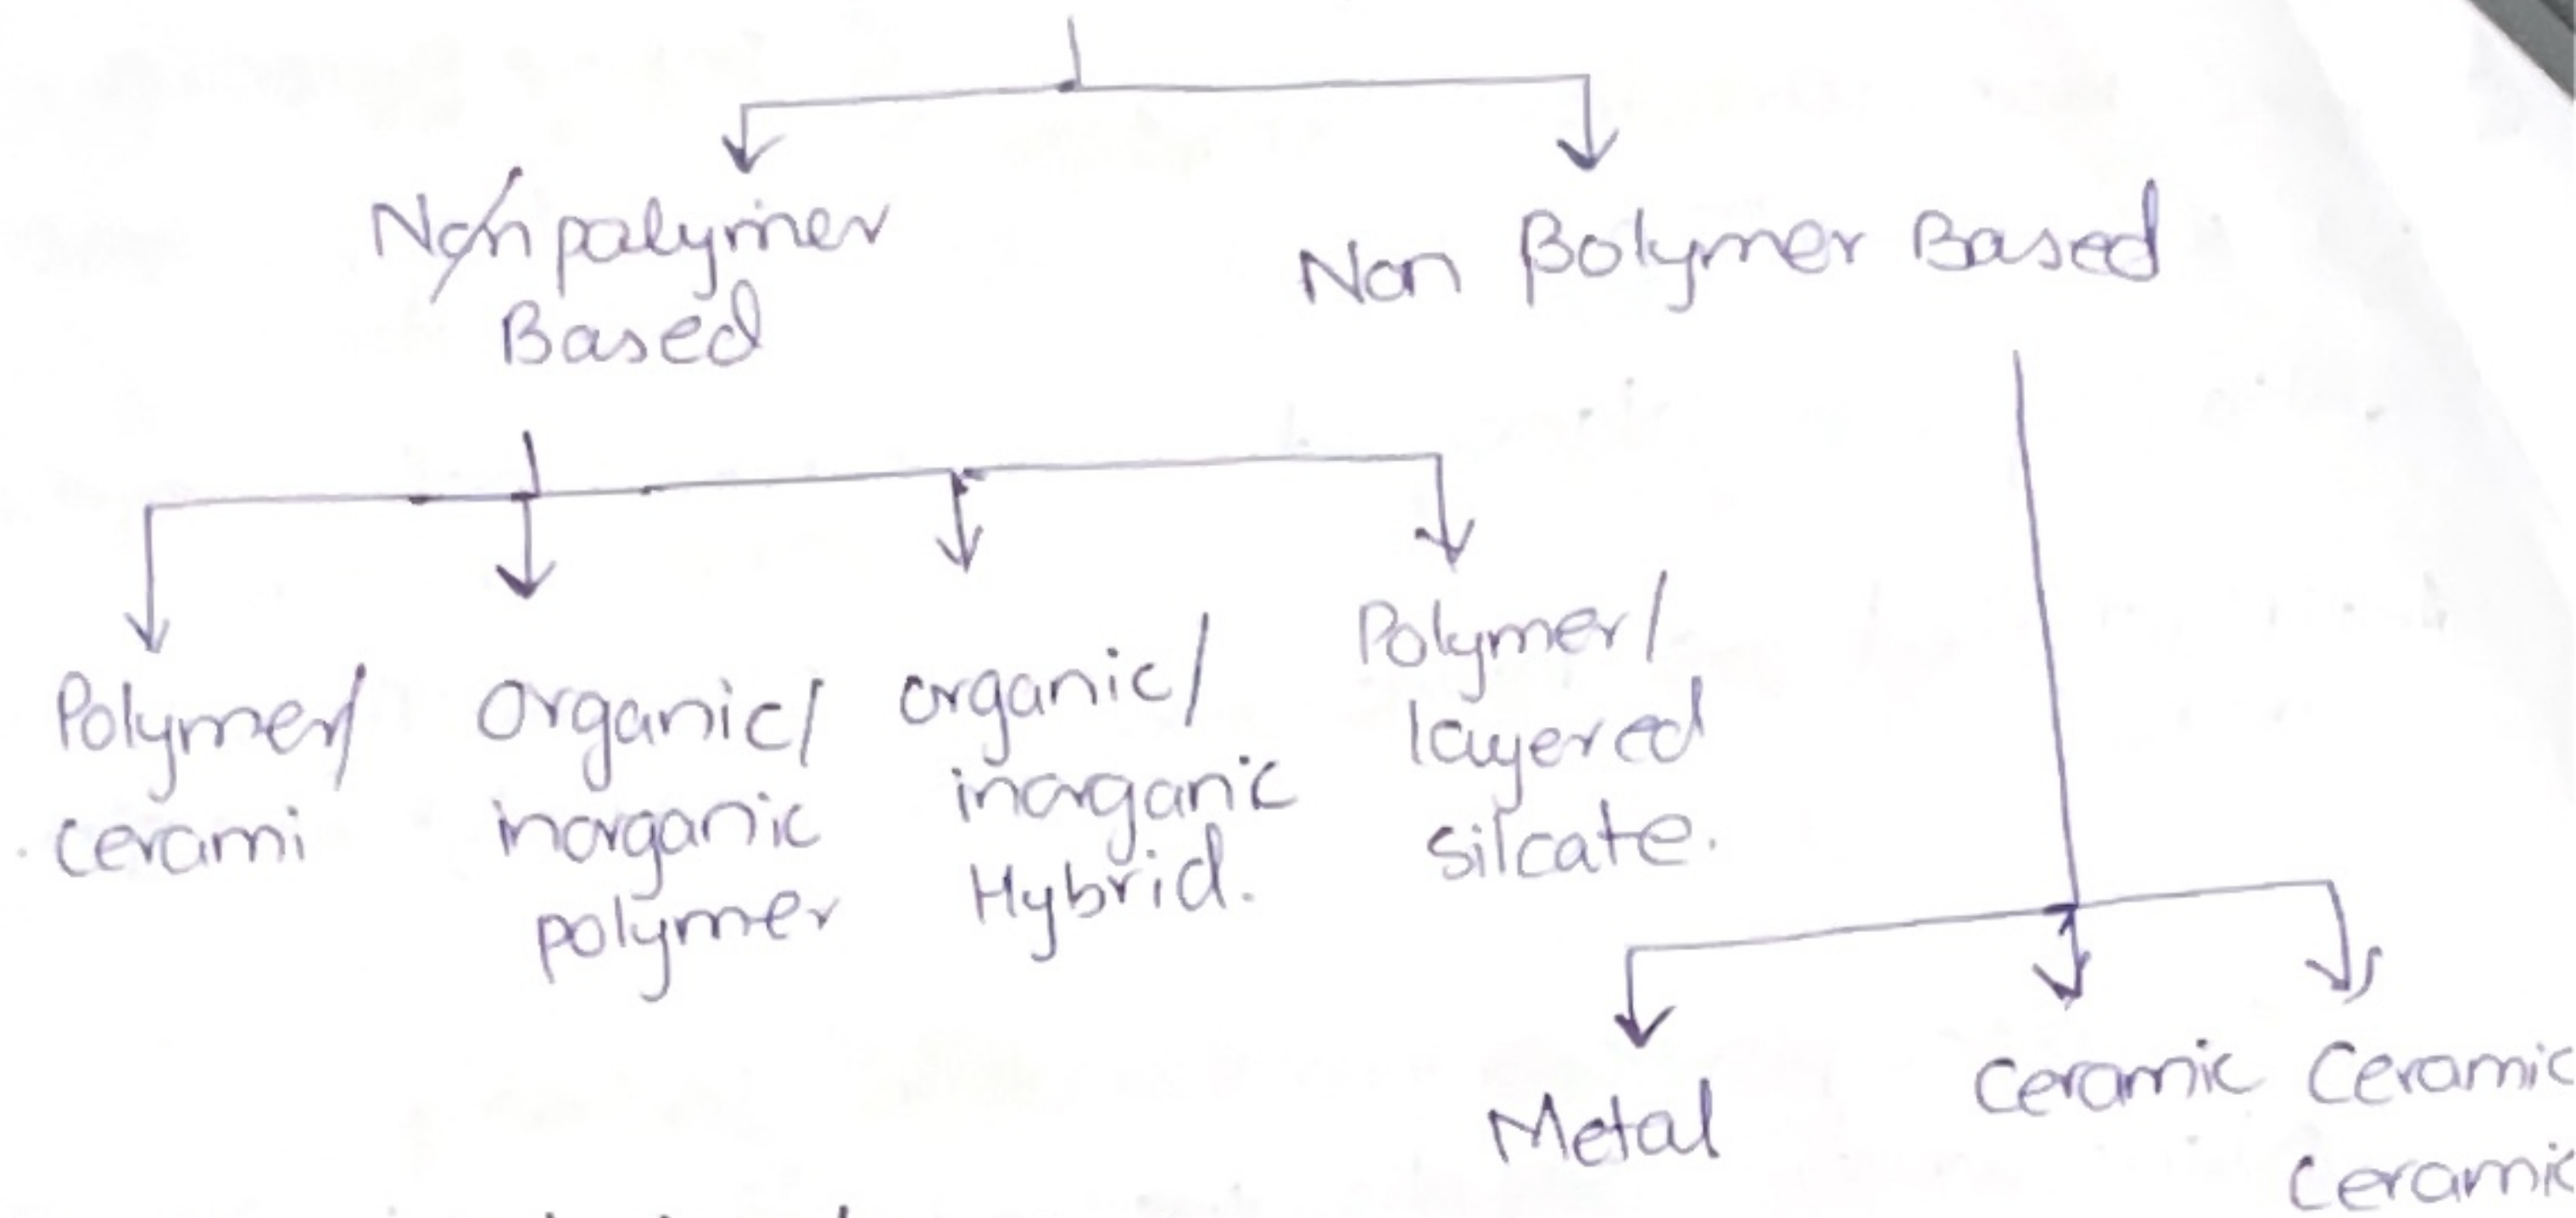 polymer
Based
Non Polymer Based
Polymer/
cerami
Organic/
inorganic
polymer
organic/
inorganic
Hybrid.
Polymer/
layered
silcate.
Metal
Ceramic
Ceramic
Ceramic